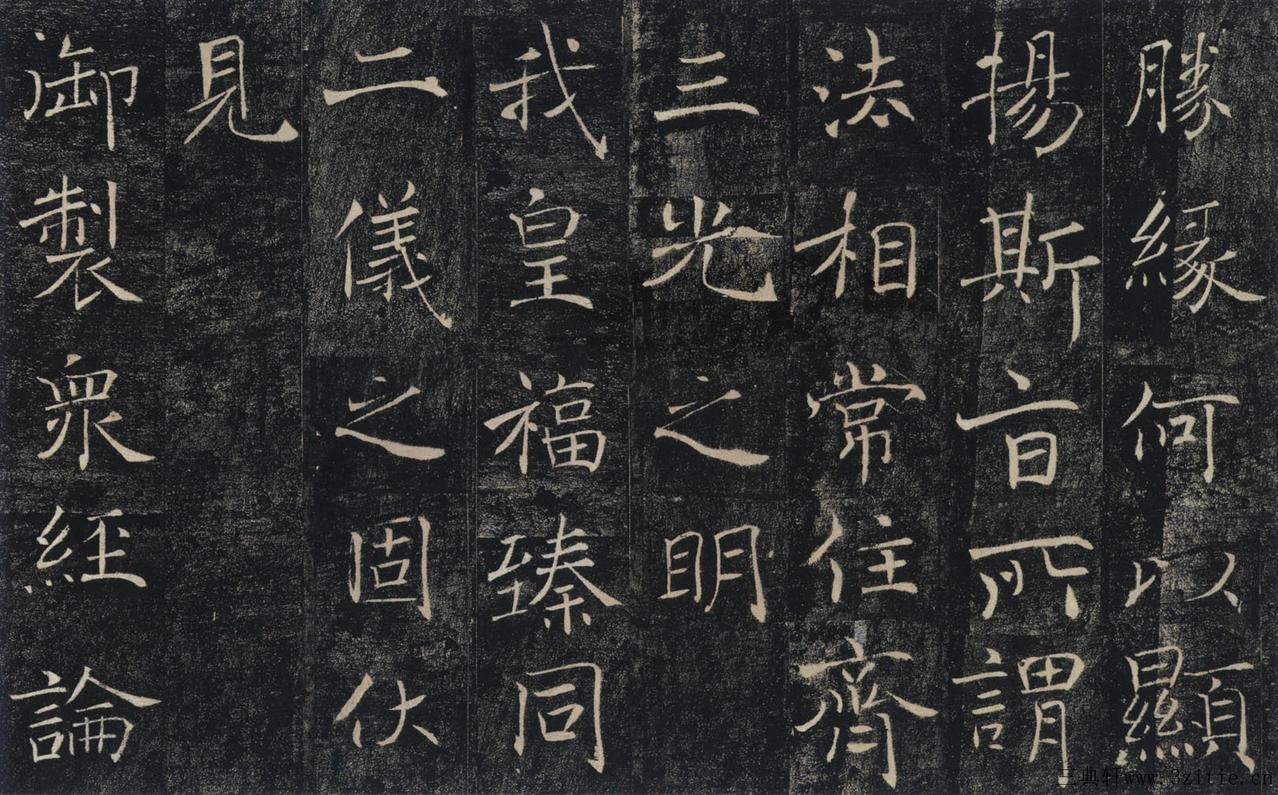 勝緣何以顯
揚斯旨所謂
法相常住齊
三光之明
我皇福臻同
二儀之固伏
見
御製眾經論
三典轩www.3zitie.cn